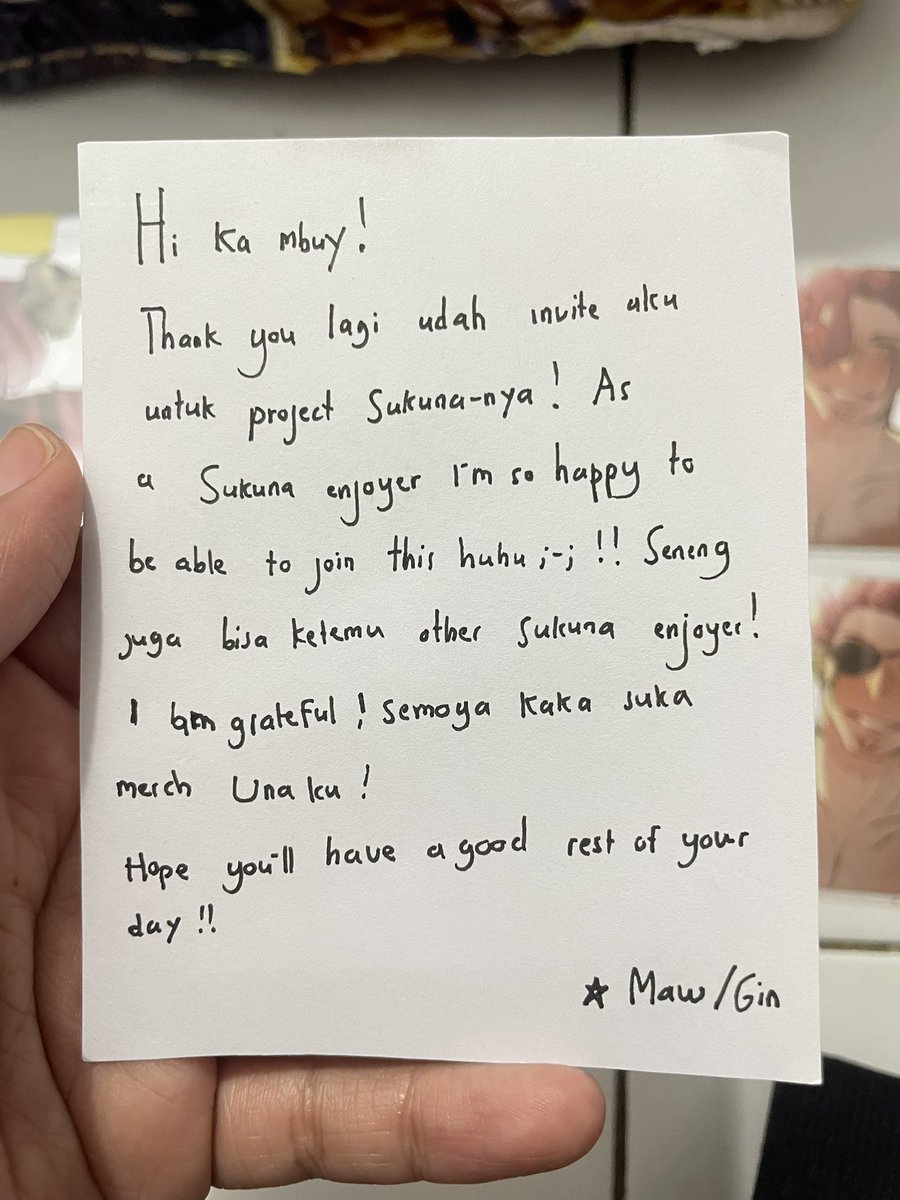 Hi Ka mbuy!
Thank you lagi udah invite aku
untuk project Sukuna-nya! As
a Sukuna enjoyer I'm so happy to
be able to join this huhu ;-; !! Seneng
juga bisa ketemu other Sukuna enjoyer!
I am grateful! Semoga Kaka suka
merch Una ku!
Hope you'll have a good rest of your
day!!
★ Maw/Gin